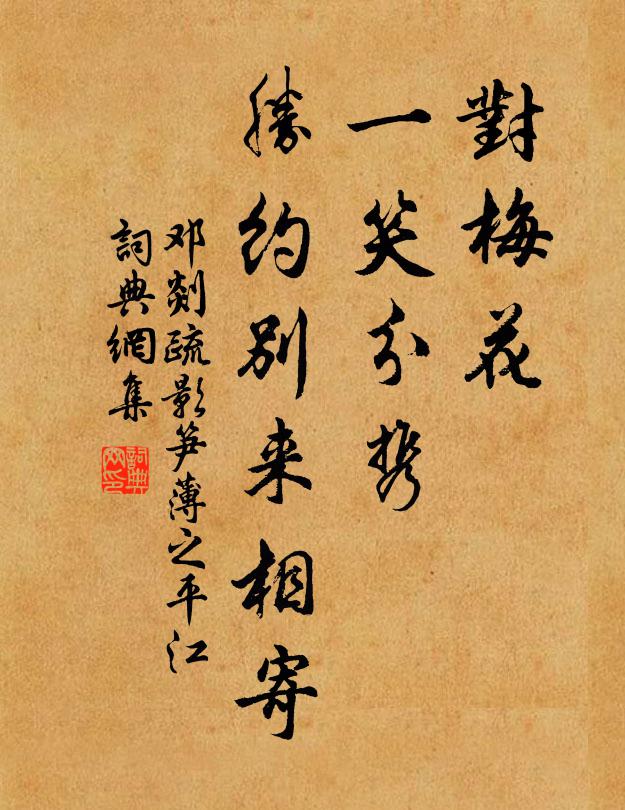 對梅花
一笑分携
勝約別来相寄
邓剡疏影笋薄之平江
詞典網集
詞典網印